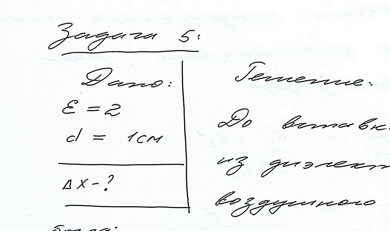 Задача 5:
Дано:
ε = 2
d = 1см
Δx - ?
Решение:
До вставк
из диэлект
воздушного